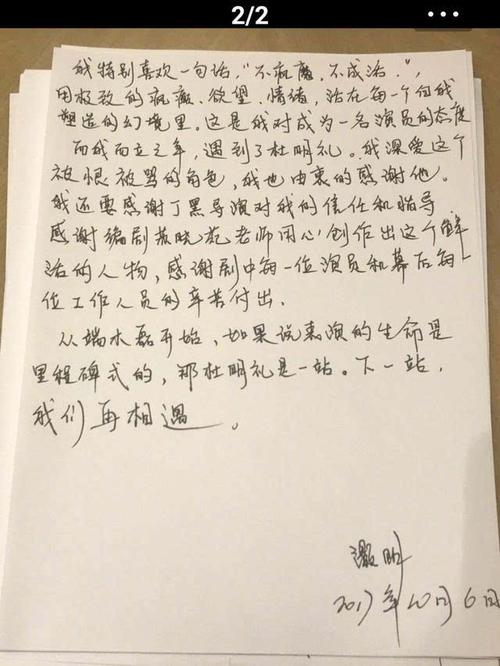 2/2
我特别喜欢一句话，“不疯魔，不成活，”
用极致的疯癫、欲望、情绪，活在每一个自我
塑造的幻境里。这是我对成为一名演员的态度
而我而立之年，遇到了杜明礼。我深爱这个
被恨被骂的角色，我也由衷的感谢他。
我还要感谢丁黑导演对我的信任和指导
感谢编剧苏晓苑老师用心创作出这个鲜
活的人物，感谢剧中每一位演员和幕后每一
位工作人员的辛苦付出。
从端水磊开始，如果说表演的生命是
里程碑式的，那杜明礼是一站。下一站，
我们再相遇。
澈昕
2017年10月6日